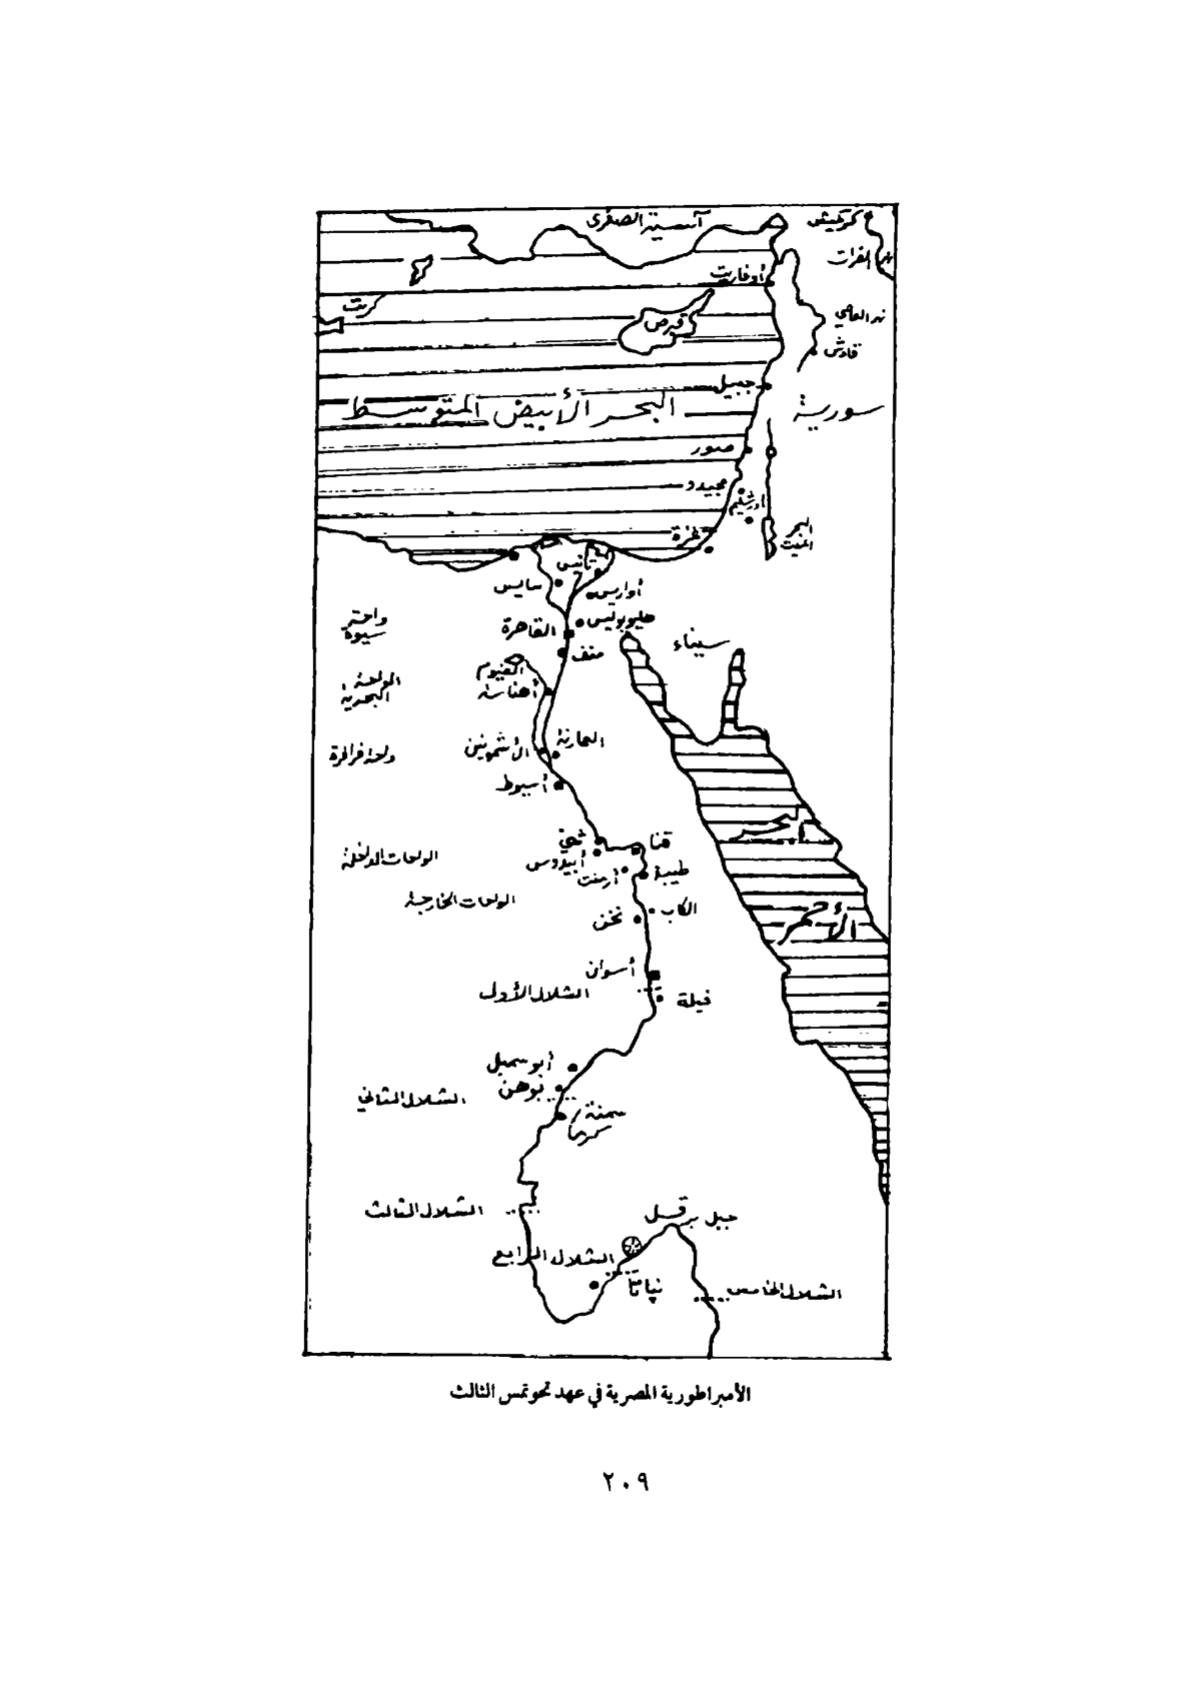 آسية الصغرى
كركميش
نهر الفرات
أوغاريت
كريت
قبرص
نهر العاصي
قادش
جبيل
البحر الأبيض المتوسط
سورية
صور
مجيدو
أورشليم
غزة
البحر
الميت
تانيس
سايس
أواريس
هليوبوليس
القاهرة
واحة
سيوة
منف
سيناء
الفيوم
أهناسة
الواحة
البحرية
العمارنة
الأشمونين
واحة فرافرة
أسيوط
البحر
الأحمر
قنا
أبيدوس
الواحات الداخلة
أرمنت
طيبة
الواحات الخارجة
الكاب
نخن
أسوان
الشلال الأول
فيلة
أبو سمبل
بوهن
الشلال الثاني
سمنة
الشلال الثالث
جبل برقل
الشلال الرابع
نپاتا
الشلال الخامس
الأمبراطورية المصرية في عهد تحوتمس الثالث
٢٠٩